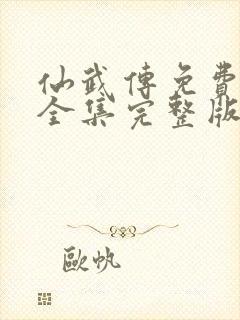 仙武傳免費
全集完整版
歐帆